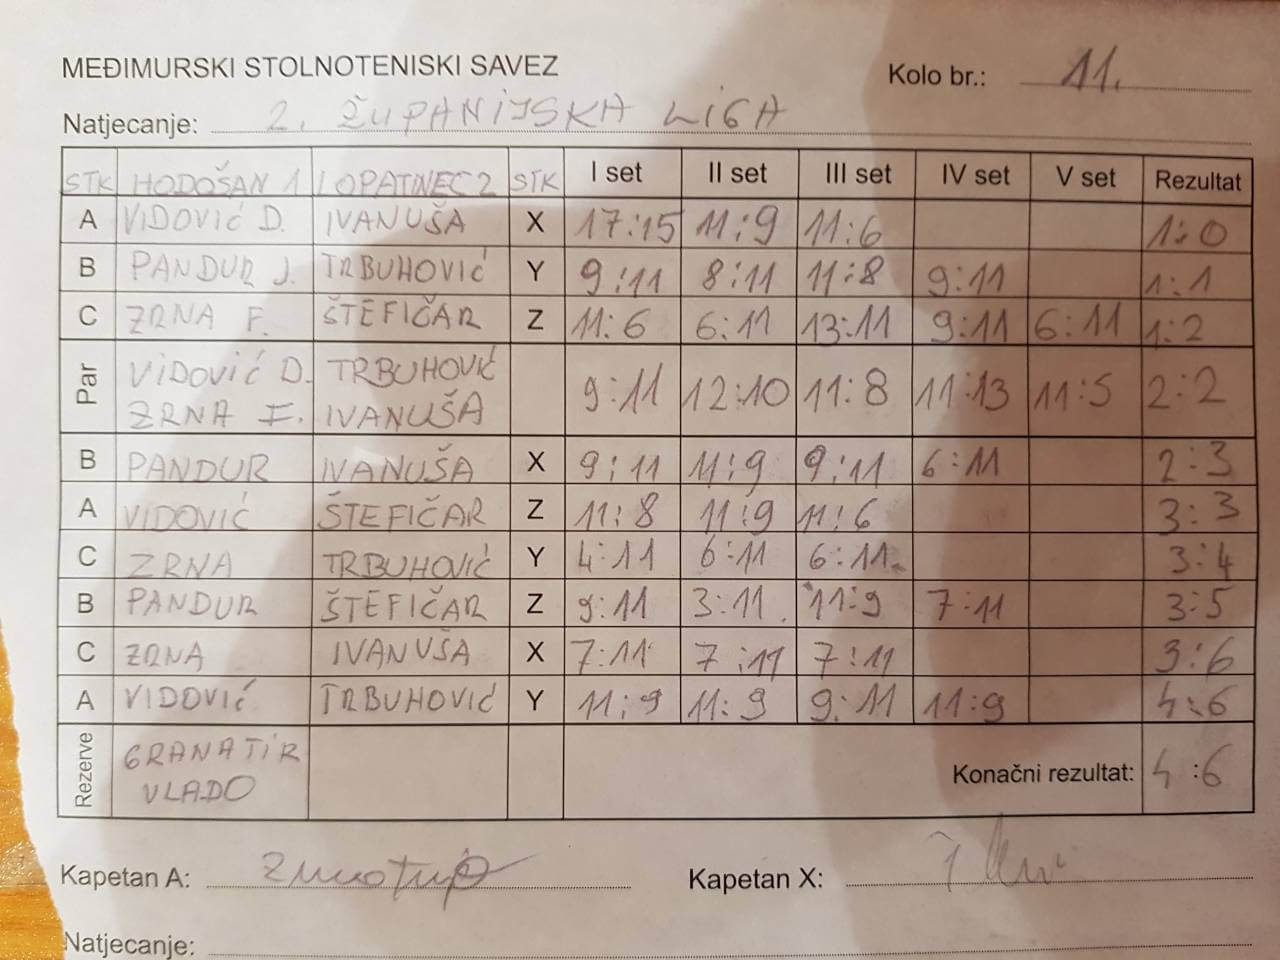 MEĐIMURSKI STOLNOTENISKI SAVEZ
Kolo br.: 11.
Natjecanje: 2. ŽUPANIJSKA LIGA
STK HODOŠAN 1 LOPATINEC 2 STK I set II set III set IV set V set Rezultat
A VIDOVIĆ D. IVANUŠA X 17:15 11:9 11:6 1:0
B PANDUR J. TRBUHOVIĆ Y 9:11 8:11 11:8 9:11 1:1
C ZRNA F. ŠTEFIČAR Z 11:6 6:11 13:11 9:11 6:11 1:2
Par VIDOVIĆ D. TRBUHOVIĆ 9:11 12:10 11:8 11:13 11:5 2:2
ZRNA F. IVANUŠA
B PANDUR IVANUŠA X 9:11 11:9 9:11 6:11 2:3
A VIDOVIĆ ŠTEFIČAR Z 11:8 11:9 11:6 3:3
C ZRNA TRBUHOVIĆ Y 4:11 6:11 6:11 3:4
B PANDUR ŠTEFIČAR Z 9:11 3:11 11:9 7:11 3:5
C ZRNA IVANUŠA X 7:11 7:11 7:11 3:6
A VIDOVIĆ TRBUHOVIĆ Y 11:9 11:9 9:11 11:9 4:6
Rezerve GRANATIR
VLADO
Konačni rezultat: 4:6
Kapetan A:
Kapetan X:
Natjecanje: